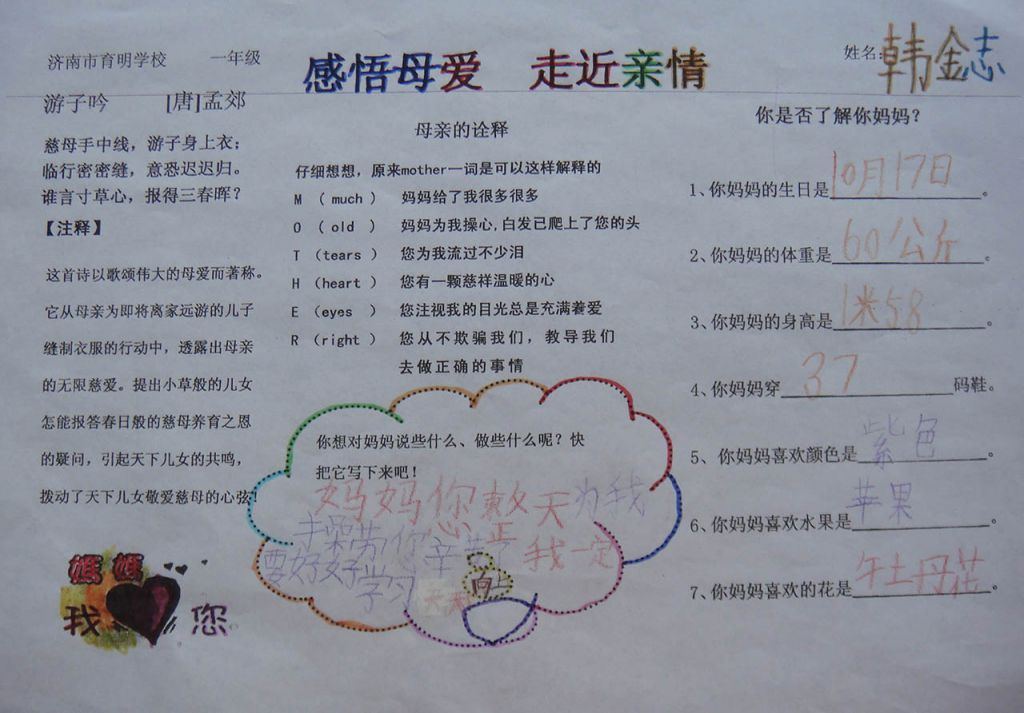 济南市育明学校 一年级
感悟母爱 走近亲情
姓名:韩金志
游子吟 [唐]孟郊
慈母手中线，游子身上衣；
临行密密缝，意恐迟迟归。
谁言寸草心，报得三春晖？
【注释】
这首诗以歌颂伟大的母爱而著称。
它从母亲为即将离家远游的儿子
缝制衣服的行动中，透露出母亲
的无限慈爱。提出小草般的儿女
怎能报答春日般的慈母养育之恩
的疑问，引起天下儿女的共鸣，
拨动了天下儿女敬爱慈母的心弦!
媽媽
我 您
母亲的诠释
仔细想想，原来mother一词是可以这样解释的
M （much ） 妈妈给了我很多很多
O （old ） 妈妈为我操心,白发已爬上了您的头
T （tears ） 您为我流过不少泪
H （heart ） 您有一颗慈祥温暖的心
E （eyes ） 您注视我的目光总是充满着爱
R （right ） 您从不欺骗我们，教导我们
去做正确的事情
你想对妈妈说些什么、做些什么呢？快
把它写下来吧！
妈妈你 天为我
劳你 辛苦了我一定
要好好学习天天向上
你是否了解你妈妈？
1、你妈妈的生日是10月17日。
2、你妈妈的体重是60公斤。
3、你妈妈的身高是1米58。
4、你妈妈穿37码鞋。
5、你妈妈喜欢颜色是紫色。
6、你妈妈喜欢水果是苹果。
7、你妈妈喜欢的花是午土丹花。